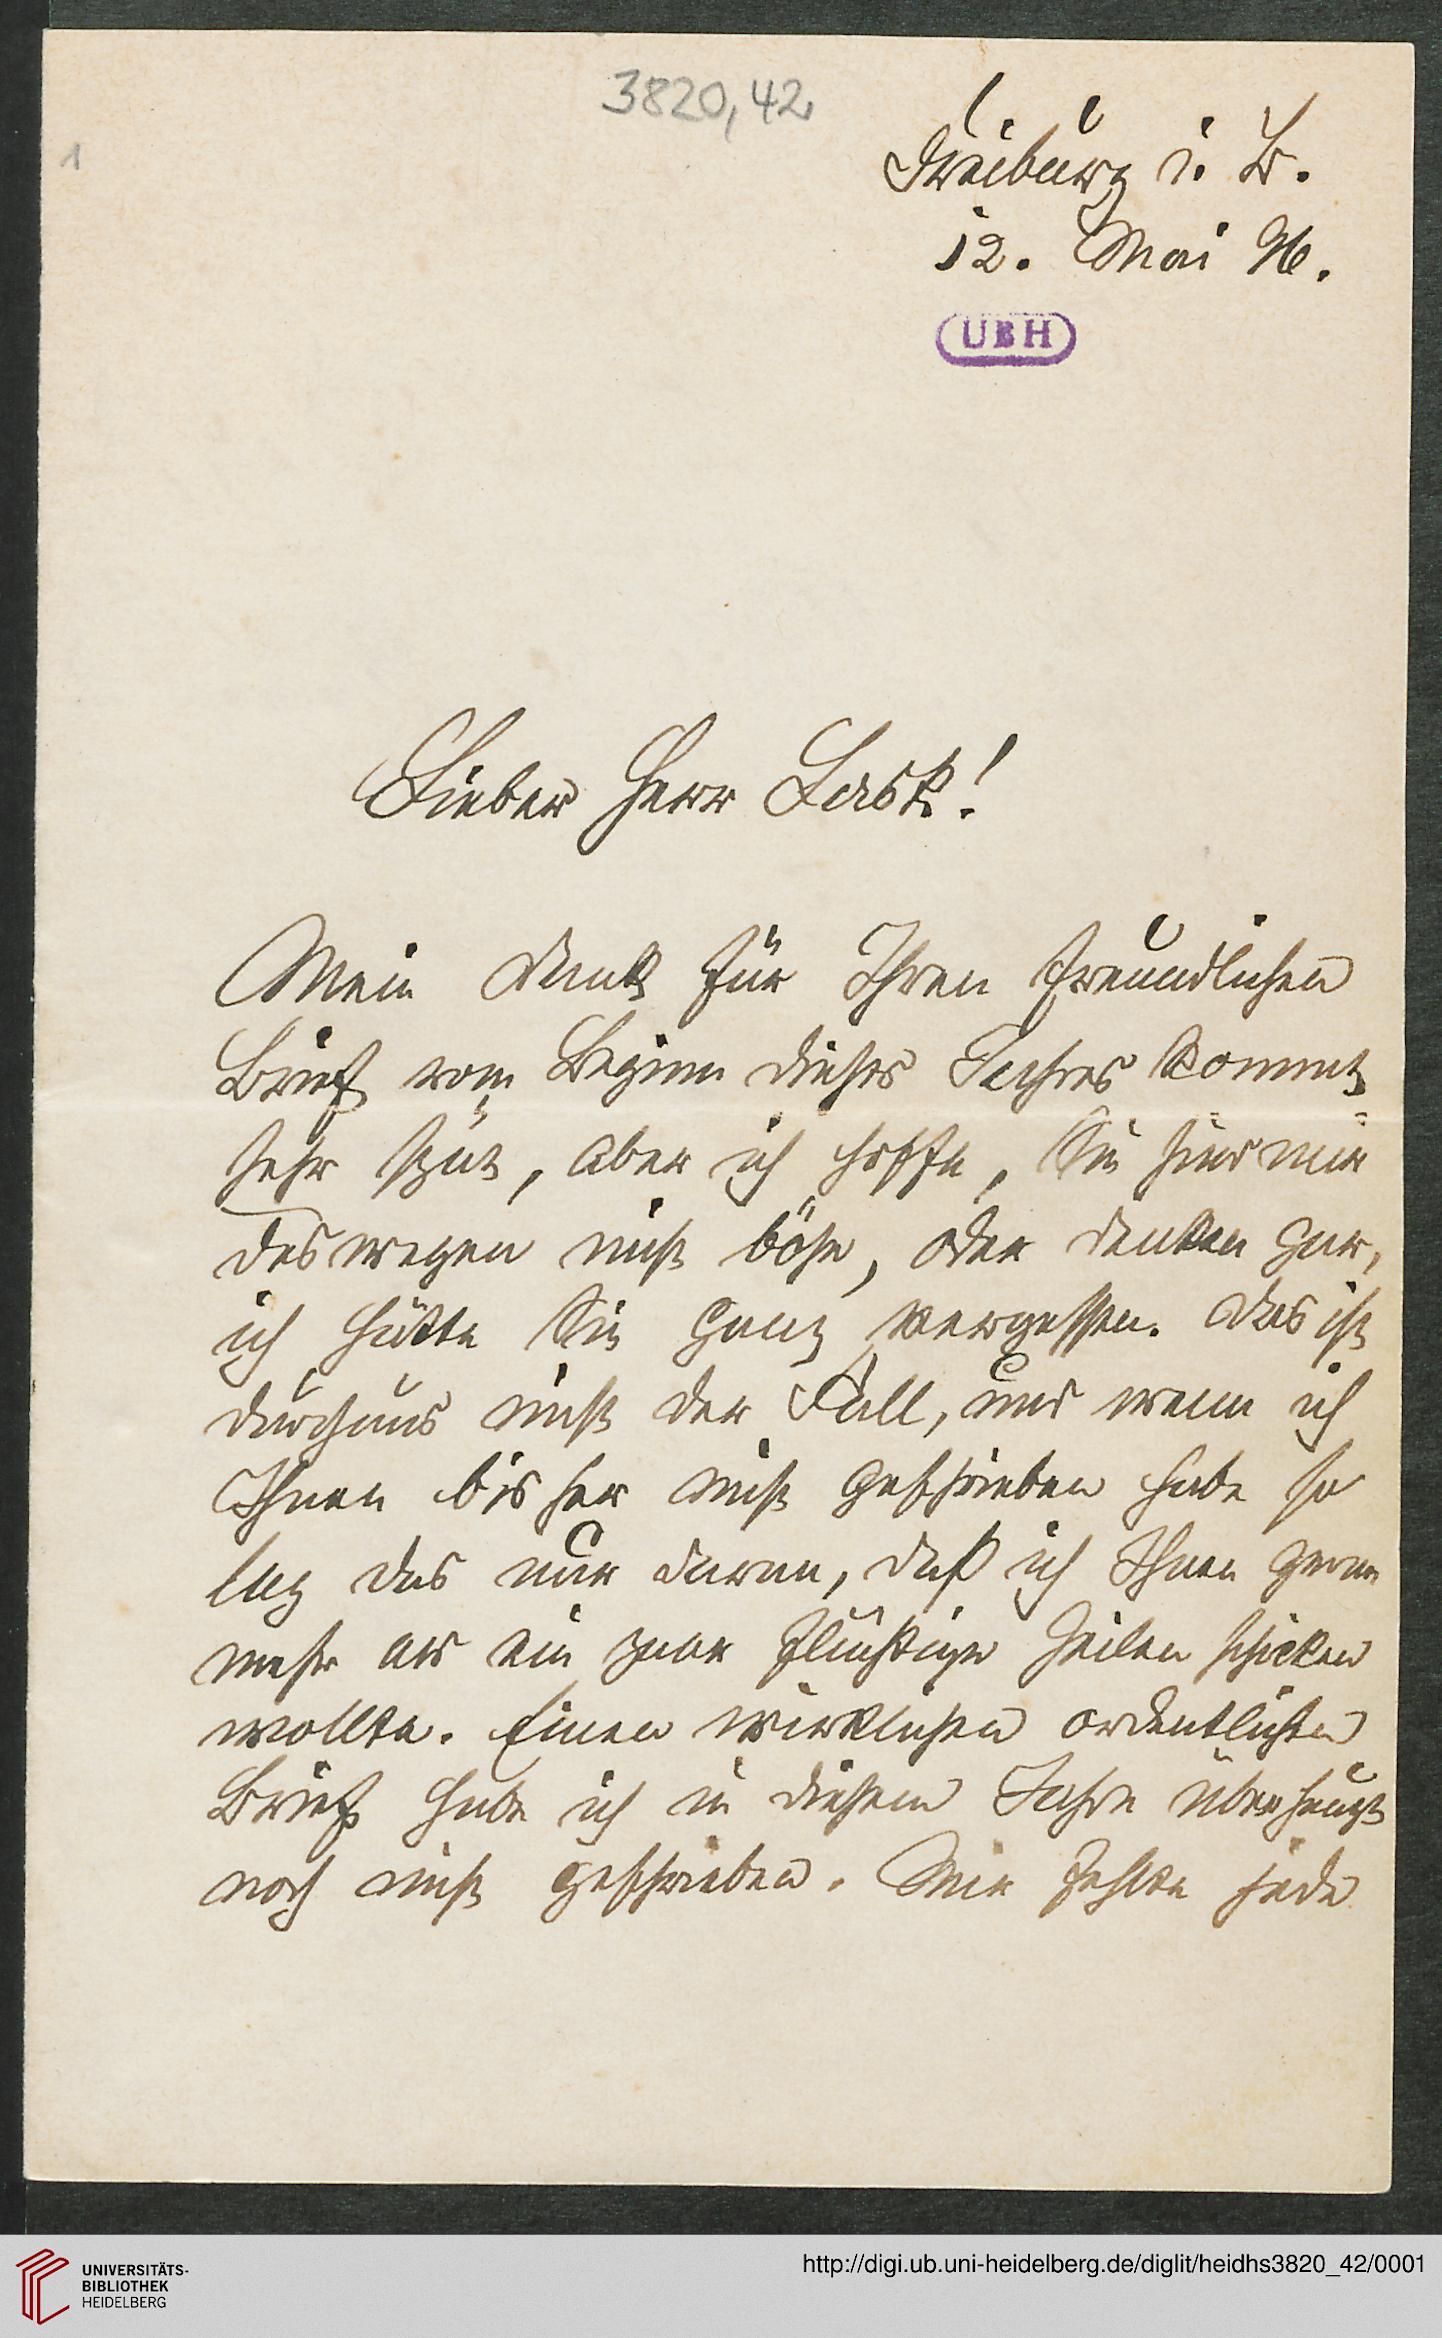 3820,42
1
Freiburg i. B.
12. Mai 96.
UBH
Lieber Herr Lask!
Mein Dank für Ihren freundlichen
Brief vom Beginn dieses Jahres kommt
sehr spät, aber ich hoffe, Sie sind mir
deswegen nicht böse, oder denken gar,
ich hätte Sie ganz vergessen. Das ist
durchaus nicht der Fall, und wenn ich
Ihnen bisher nicht geschrieben habe so
lag das nur daran, daß ich Ihnen gern
mehr als ein paar flüchtige Zeilen schicken
wollte. Einen wirklichen ordentlichen
Brief habe ich in diesem Jahre überhaupt
noch nicht geschrieben. Mir fehlte jede
UNIVERSITÄTS-
BIBLIOTHEK
HEIDELBERG
http://digi.ub.uni-heidelberg.de/diglit/heidhs3820_42/0001